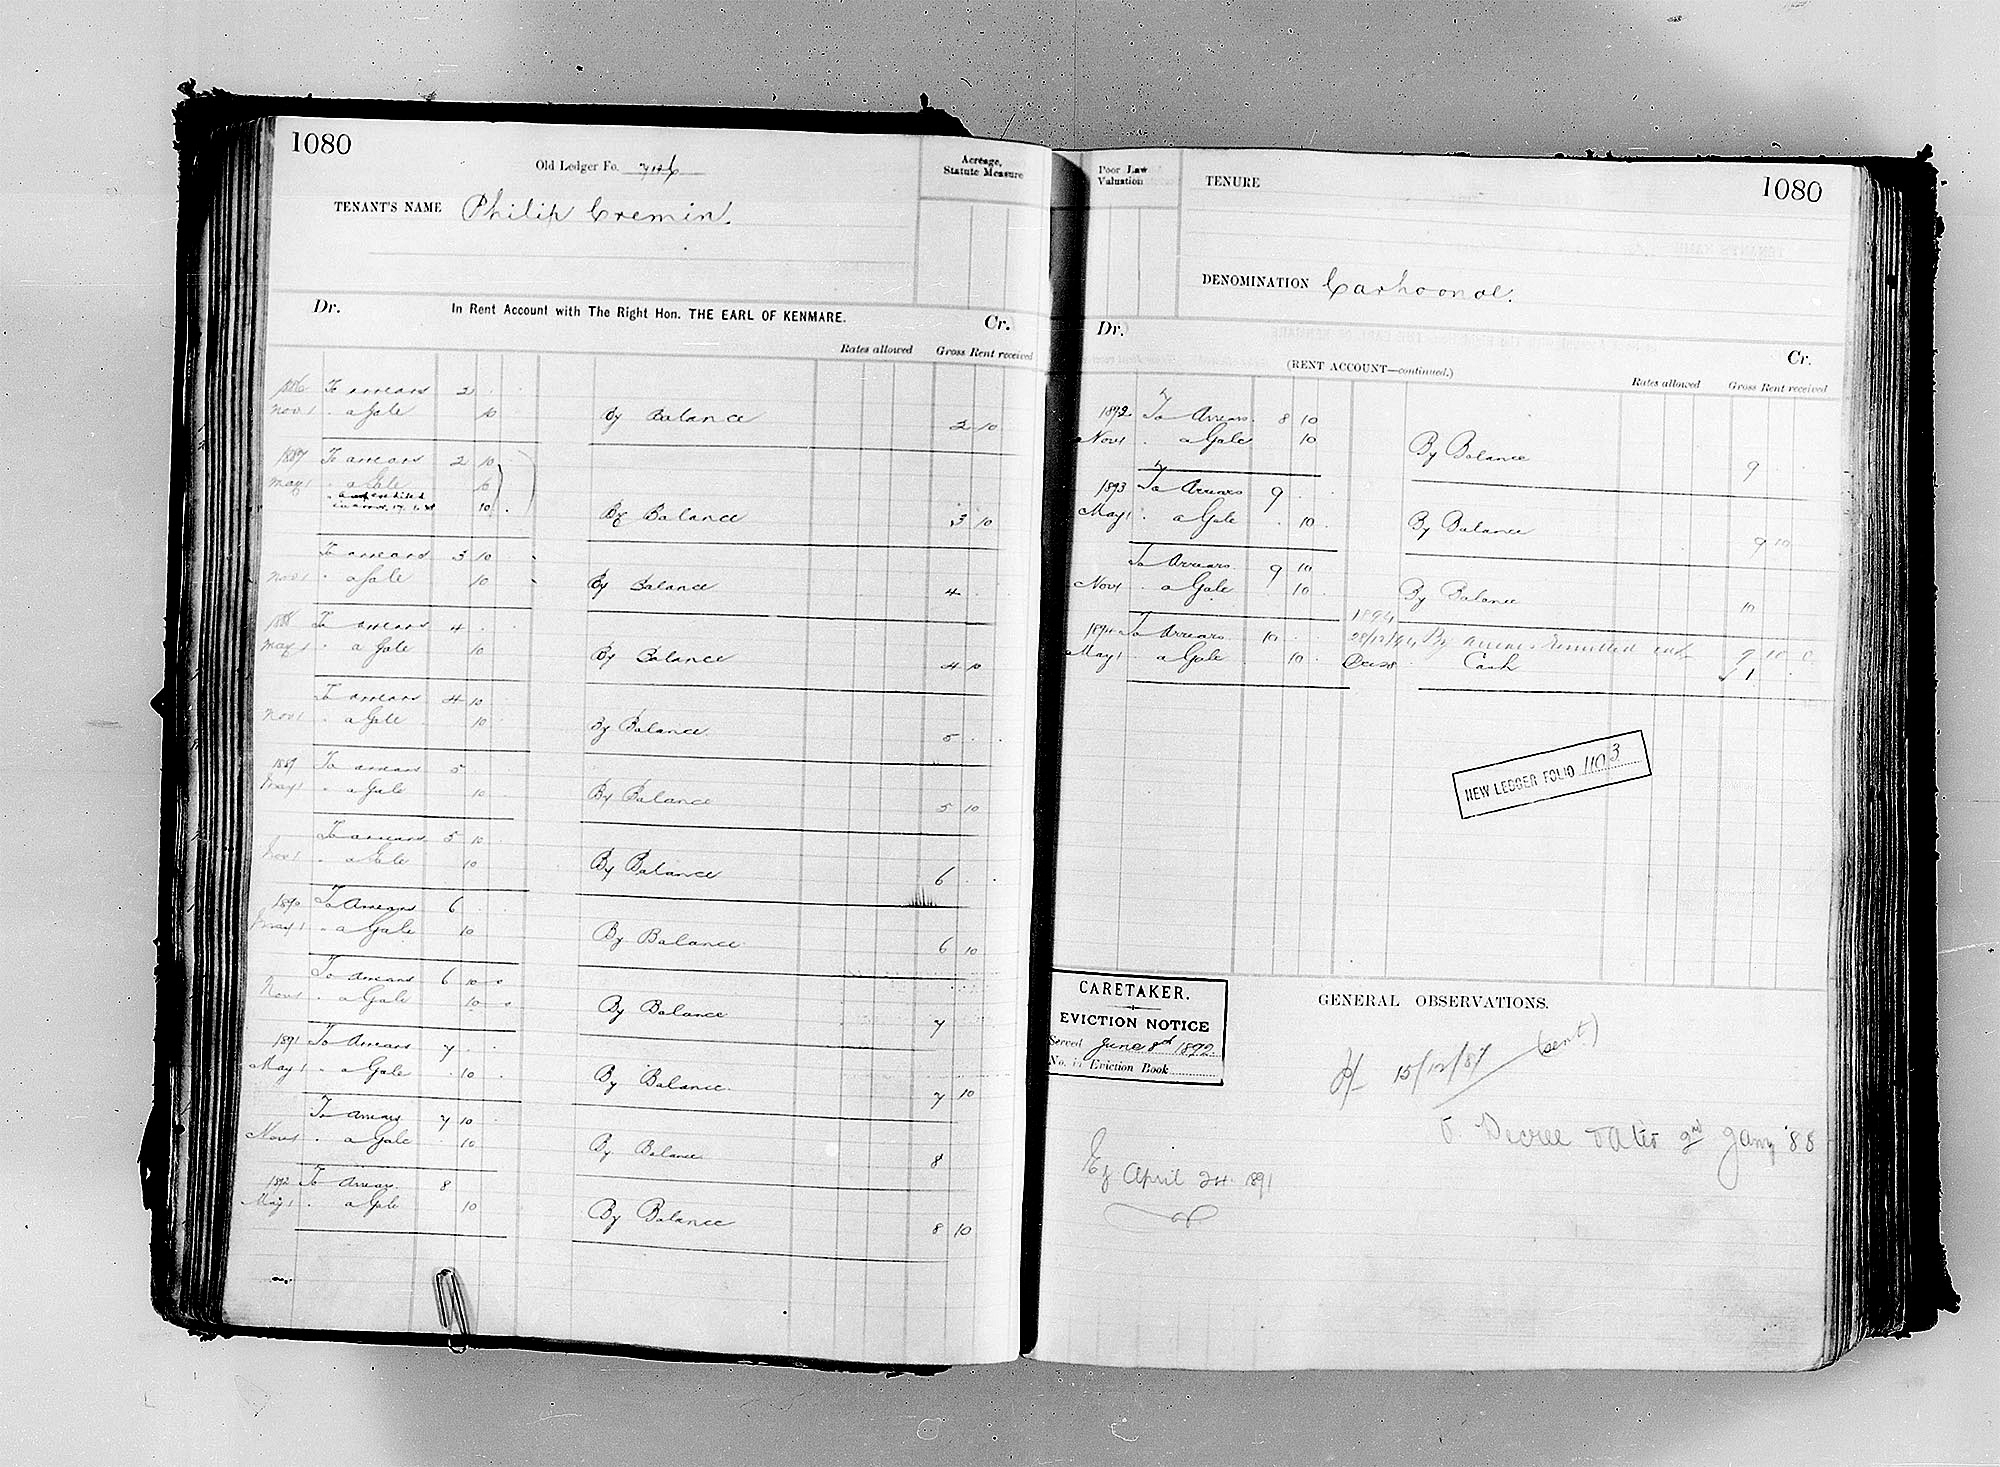 1080
Old Ledger Fo.
Acreage,
Statute Measure
TENANT'S NAME Philip Cremin.
Dr. In Rent Account with The Right Hon. THE EARL OF KENMARE. Cr.
Rates allowed Gross Rent received
1886 To arrears 2 . .
Nov 1 " a Gale 10 By Balance 2 10
1887 To arrears 2 10
May 1 " a Gale 10
10 . By Balance 3 10
To arrears 3 10
Nov 1 " a Gale 10 By Balance 4 . .
1888 To arrears 4 . .
May 1 " a Gale 10 By Balance 4 10
To arrears 4 10
Nov 1 " a Gale 10 By Balance 5 . .
1889 To arrears 5
May 1 " a Gale 10 By Balance 5 10
To arrears 5 10
Nov 1 " a Gale 10 By Balance 6 . .
1890 To Arrears 6 . .
May 1 " a Gale 10 By Balance 6 10
To Arrears 6 10 0
Nov 1 " a Gale 10 0 By Balance 7
1891 To Arrears 7 . .
May 1 " a Gale 10 . By Balance 7 10
To Arrears 7 10
Nov 1 " a Gale 10 By Balance 8
1892 To Arrears 8
May 1 " a Gale 10 By Balance 8 10
1080
Poor Law
Valuation
TENURE
DENOMINATION Carhoonoe.
Dr. (RENT ACCOUNT—continued.) Cr.
Rates allowed Gross Rent received
1892 To Arrears 8 10
Nov 1 " a Gale 10 By Balance 9 . .
1893 To Arrears 9 . .
May 1 " a Gale . 10 . By Balance 9 10
To Arrears 9 10
Nov 1 " a Gale . 10 . By Balance 10
1894
1894 To Arrears 10 . . 28/12/94 By Arrears Remitted 9 10 0
May 1 " a Gale . 10 . Dec 28 Cash 1 . .
NEW LEDGER FOLIO 1103
CARETAKER.
EVICTION NOTICE
Served June 8th 1892.
No. in Eviction Book
GENERAL OBSERVATIONS.
15/12/87 (sent)
Decree dated 2nd Jany '88
Ej April 24 1891